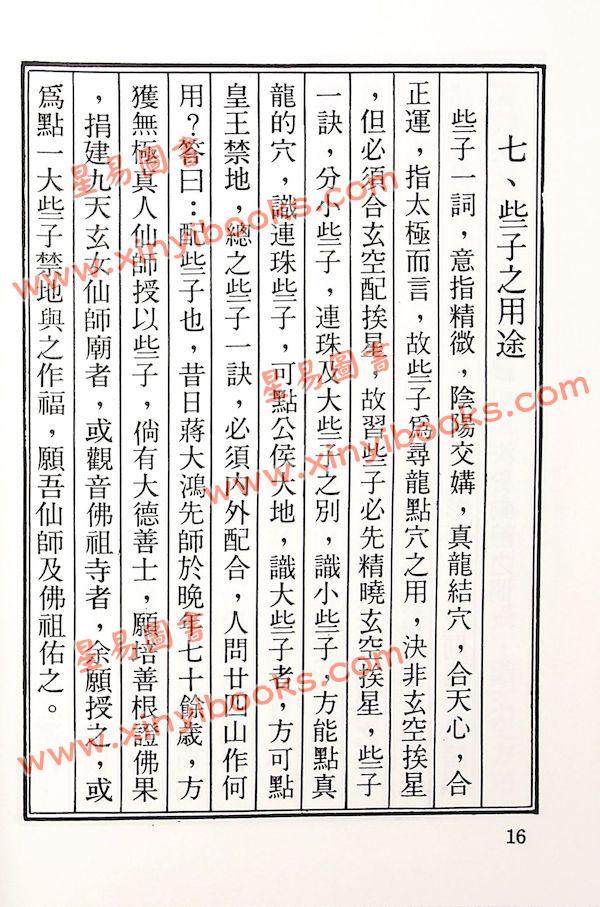 七、些子之用途
些子一詞，意指精微，陰陽交媾，真龍結穴，合天心，合
正運，指太極而言，故些子爲尋龍點穴之用，決非玄空挨星
，但必須合玄空配挨星，故習些子必先精曉玄空挨星，些子
一訣，分小些子，連珠及大些子之別，識小些子，方能點真
龍的穴，識連珠些子，可點公侯大地，識大些子者，方可點
皇王禁地，總之些子一訣，必須内外配合，人問廿四山作何
用？答曰：配些子也，昔日蔣大鴻先師於晚年七十餘歲，方
獲無極真人仙師授以些子，倘有大德善士，願培善根證佛果
，捐建九天玄女仙師廟者，或觀音佛祖寺者，余願授之，或
爲點一大些子禁地與之作福，願吾仙師及佛祖佑之。
16
星易圖書
www.xinyibooks.com
星易圖書
www.xinyibooks.com
星易圖書
www.xinyibooks.com